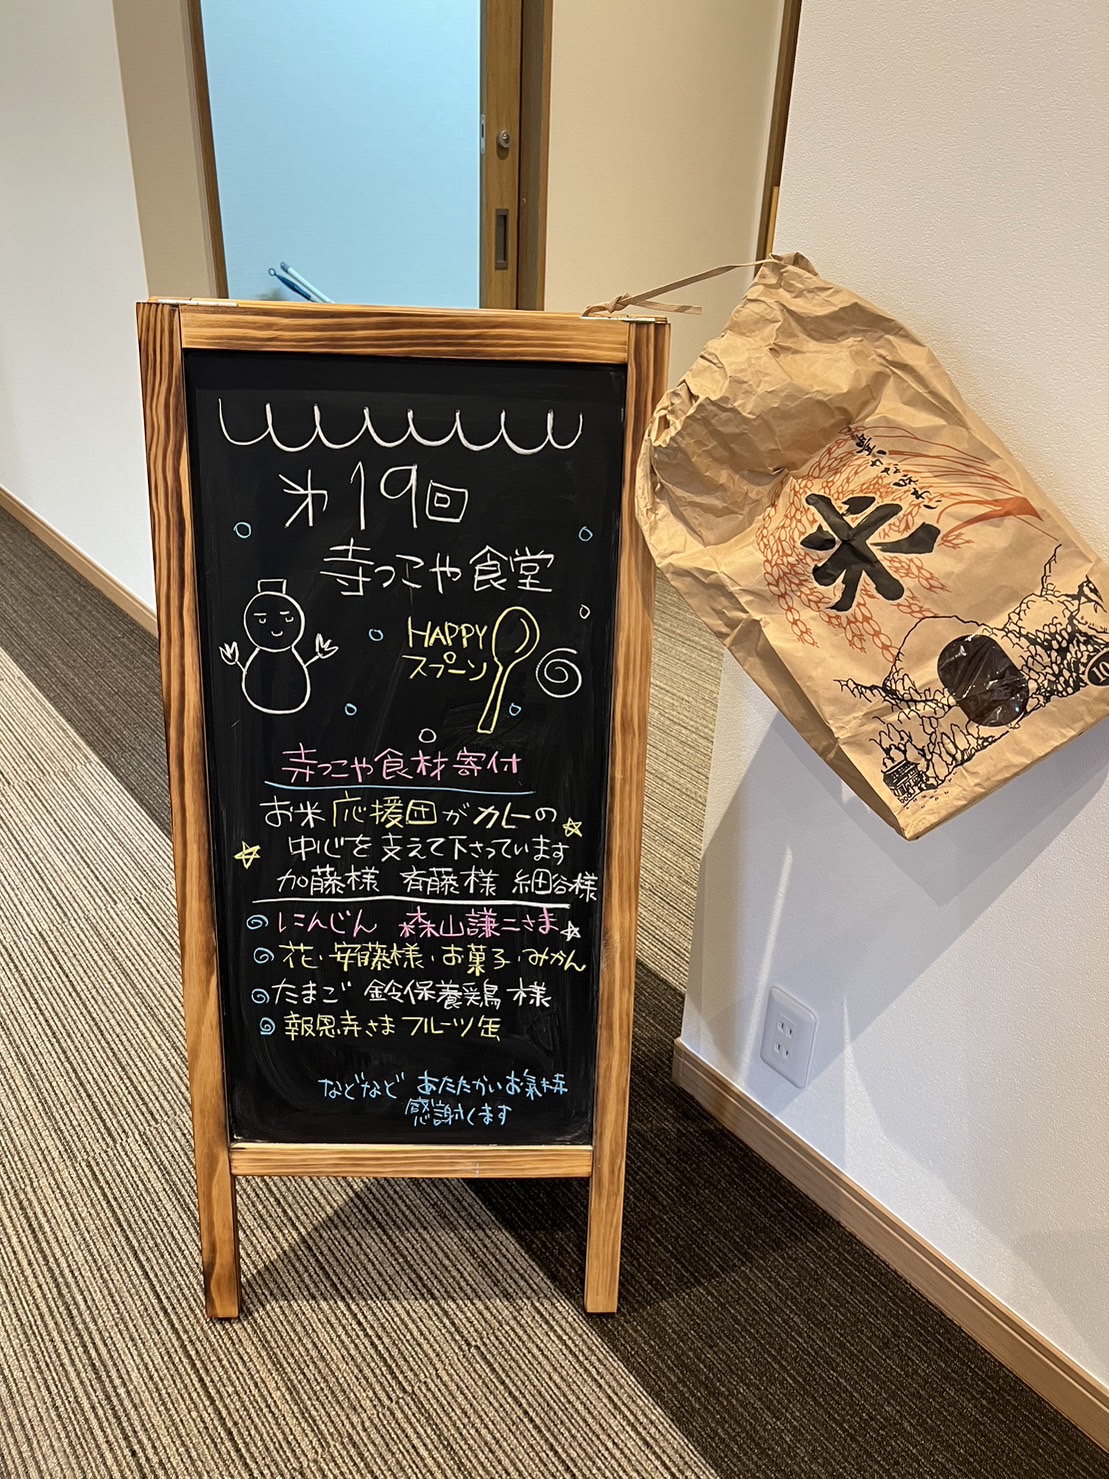 第19回
寺っこや食堂
HAPPY
スプーン
寺っこや食材寄付
お米応援団がカレーの
中心を支えて下さっています
加藤様 斉藤様 細谷様
にんじん 森山謙二さま
花・安藤様・お菓子・みかん
たまご 鈴保養鶏様
報恩寺さまフルーツ缶
などなど あたたかいお気持
感謝します
米
10